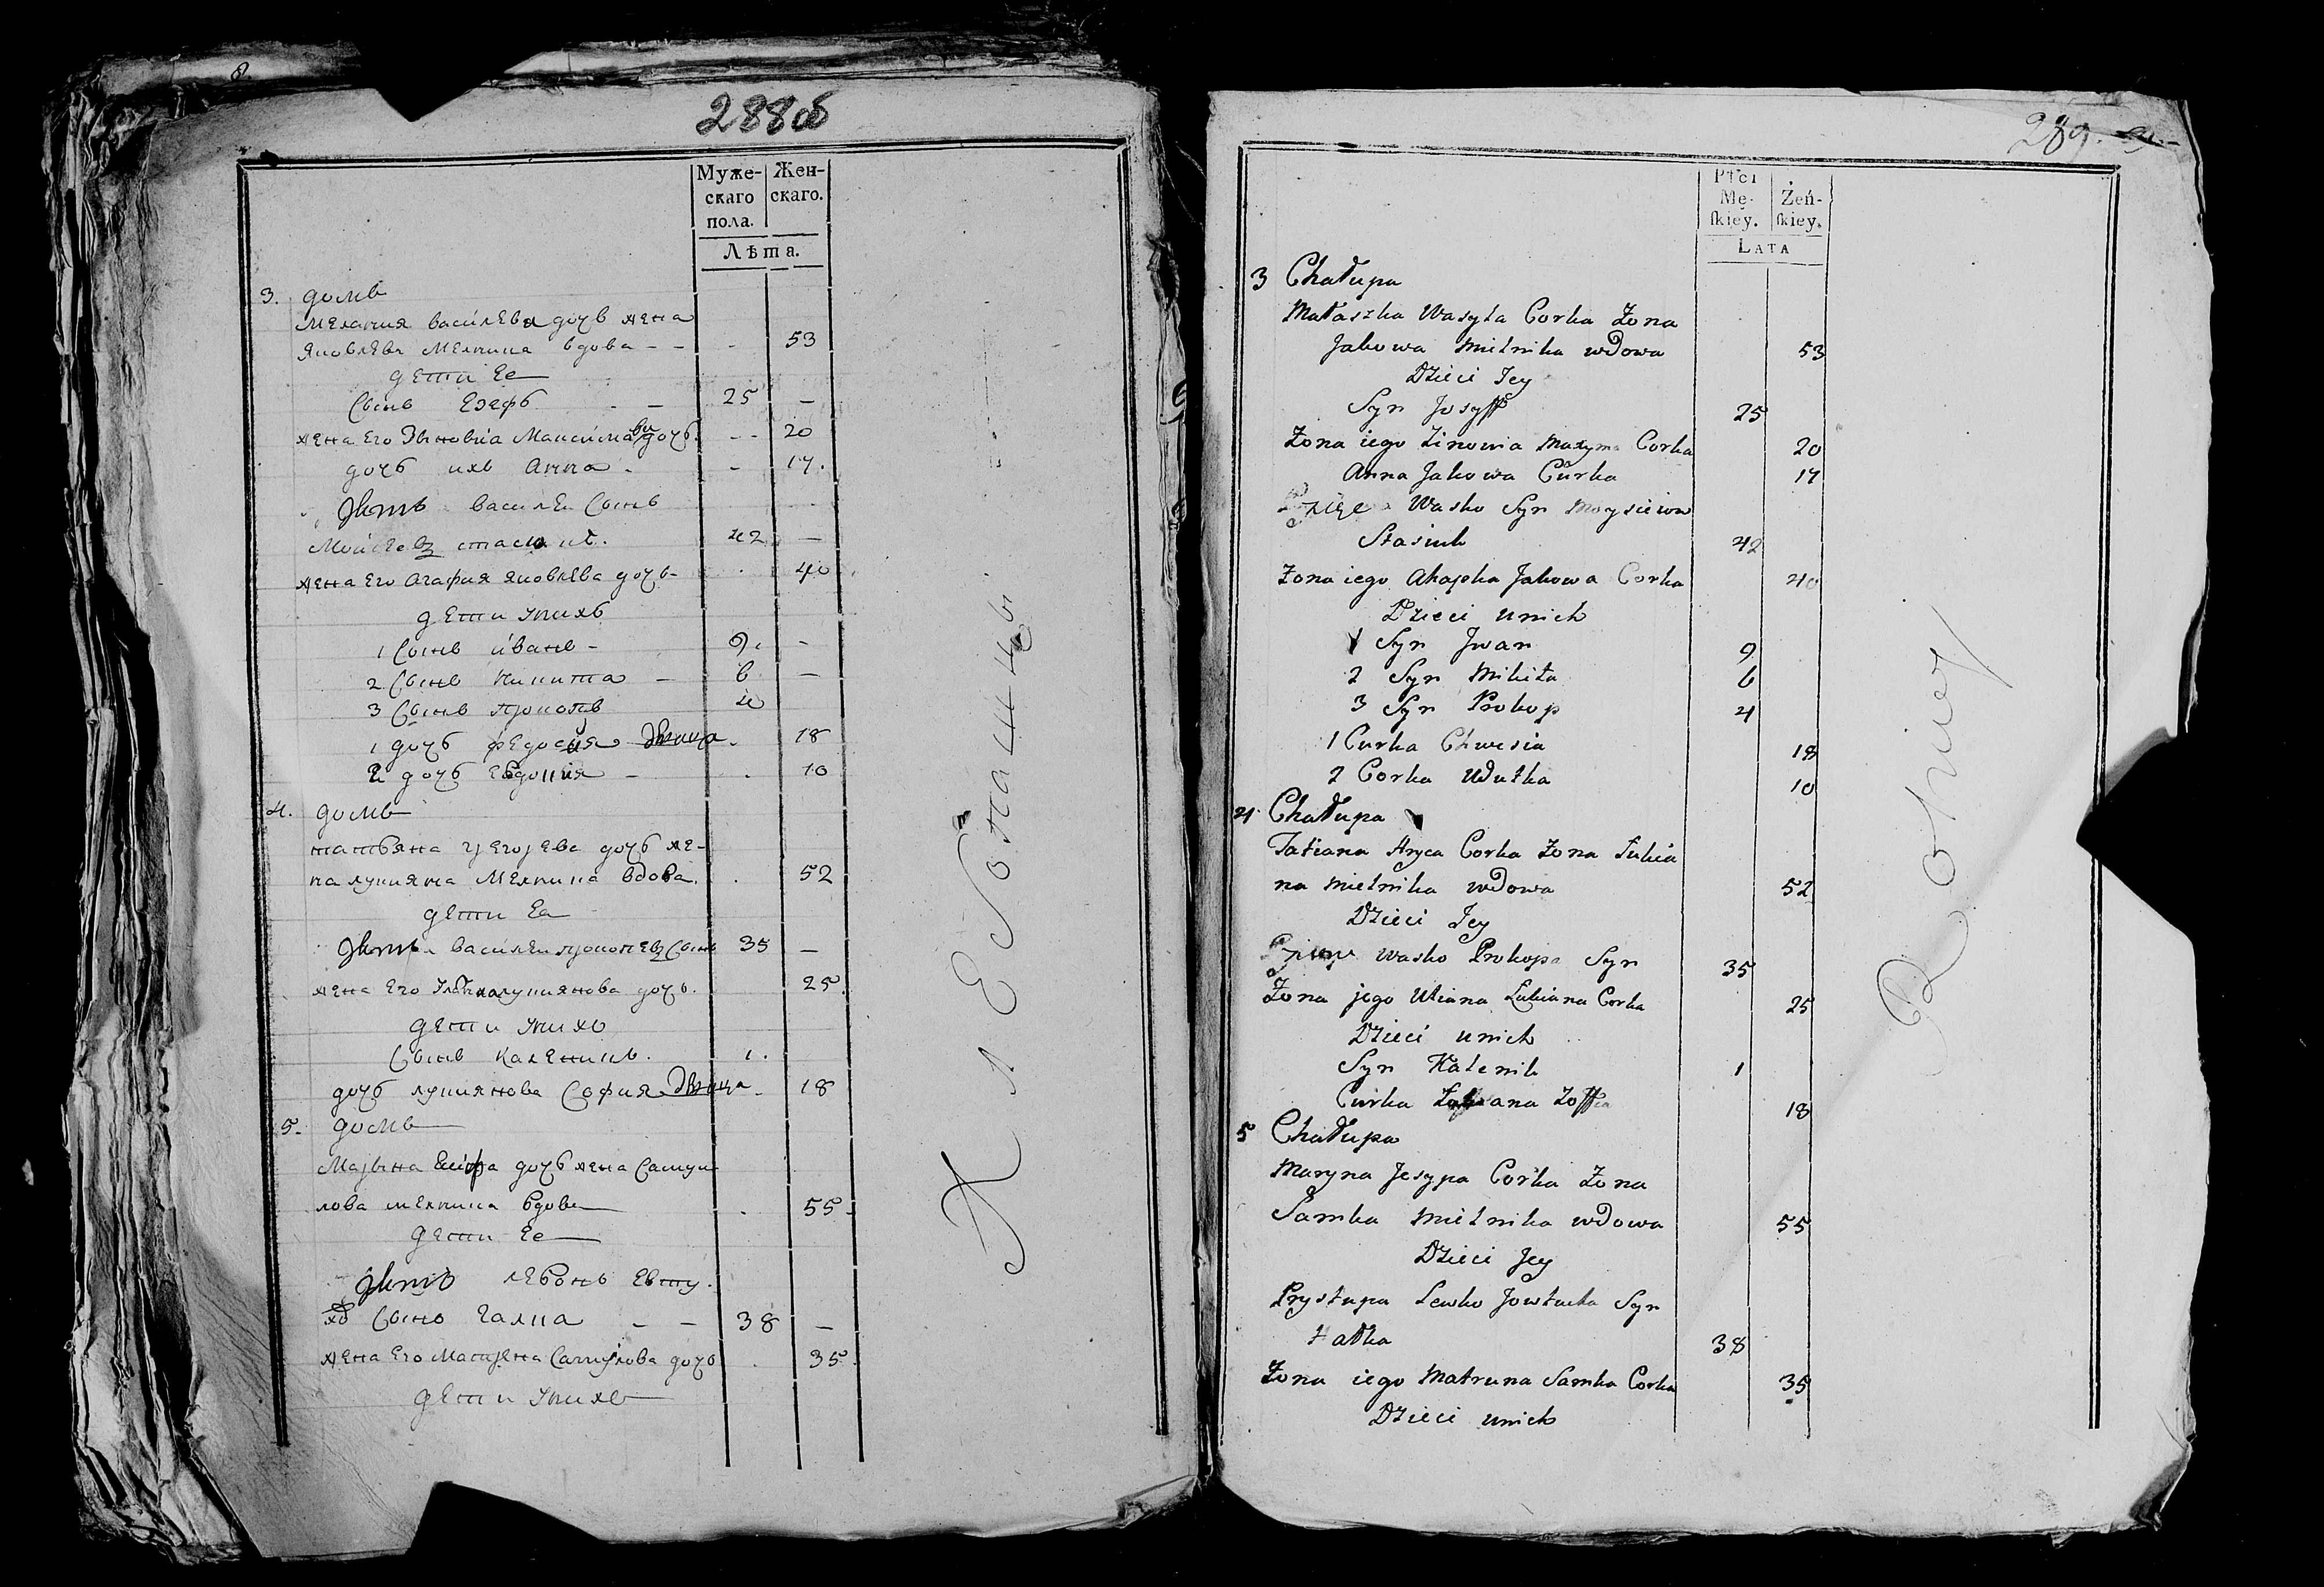 288об
Муже-
скаго
пола.
Жен-
скаго.
Лѣта.
3. домъ
Мелания василева дочь жена
Яковлева Мелника вдова - - - 53
дети Ее
Сынъ Езефъ - 25 -
жена Его Зѣновиа Максимова дочь. -- 20
дочь ихъ Анна - - 17.
Зять василеи Сынъ
Моисеевъ стасюкъ. 42 -
жена Его Агафия яковлева дочь - 40
дети унихъ
1 Сынъ иванъ - 9. -
2 Сынъ Никита - 6 -
3 Сынъ прокопъ 4
1 дочь федосия двица 18
2 дочь Евдокия - 10
4. домъ
татьяна григорева дочь же-
на лукияна Мелника вдова. 52
дети Еа
Зять василеи прокопевъ Сынъ 35 -
жена Его Улянна лукиянова дочь. 25
дети унихъ
Сынъ Каленикъ. 1.
дочь лукиянова София двица 18
5. домъ
Марина дочь жена Самуи-
лова мелника вдова 55
дети Ее
Зять левонъ Евту-
хо Сынъ Галка - - 38 -
жена Его Матрена Самуилова дочь 35
дети унихъ
289.
Płci
Mę-
ſkiey.
Żeń-
ſkiey.
LATA
3 Chałupa
Małaszka Wasyla Corka Zona
Jakowa Mielnika wdowa 53
Dzieci Jey
Syn Josyff 25
Zona iego Zinowia Maxyma Corka 20
Anna Jakowa Curka 17
Wasko Syn Moysieiow
Stasiuk 42
Zona iego Ahapka Jakowa Corka 40
Dzieci unich
1 Syn Jwan 9
2 Syn Mikita 6
3 Syn Prokop 4
1 Curka Chwesia 18
2 Corka Udutka 10
4 Chałupa
Tatiana Hryca Corka Zona Lukia
na Mielnika wdowa 52
Dzieci Jey
Wasko Prokopa Syn 35
Zona jego Uliana Lukiana Corka 25
Dzieci unich
Syn Kalenik 1
Curka Lukiana Zoffia 18
5 Chałupa
Maryna Jesypa Corka Zona
Samka Mielnika wdowa 55
Dzieci Jey
Prystupa Lewko Jowtucha Syn
Hałka 38
Zona iego Matruna Samka Corka 35
Dzieci unich